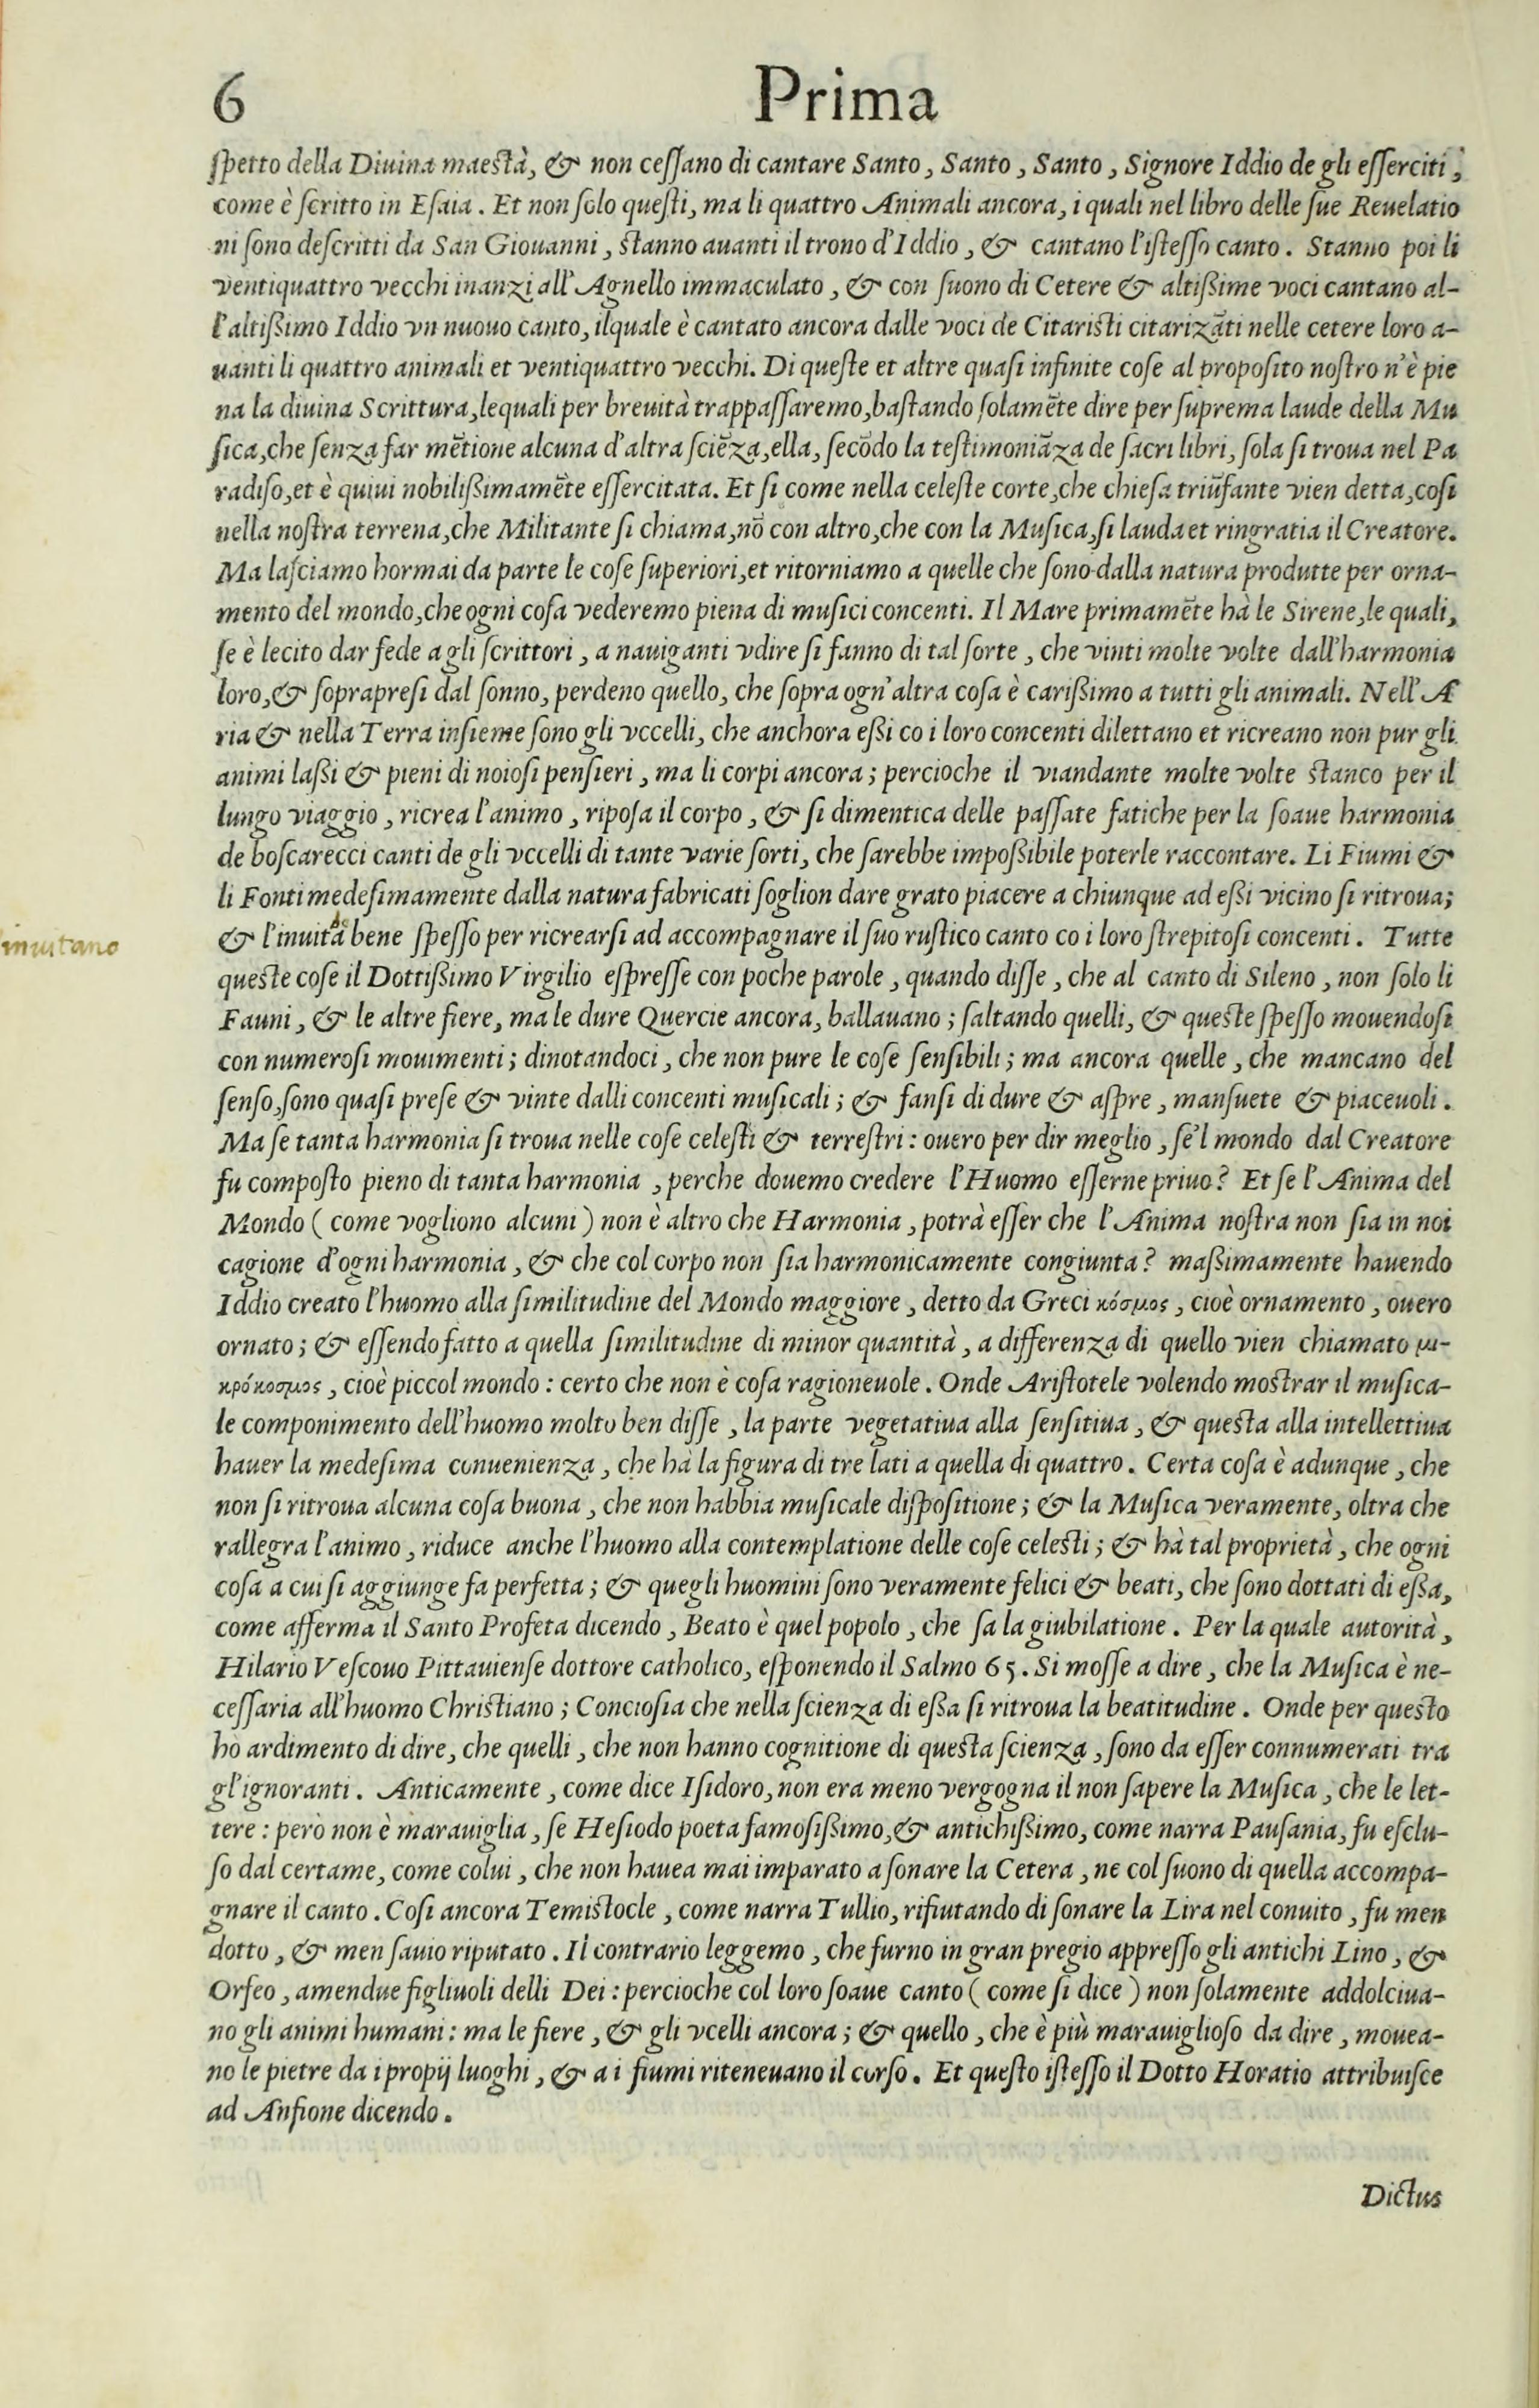 6 Prima
ſpetto della Diuina maeſtà, & non ceſſano di cantare Santo, Santo, Santo, Signore Iddio de gli eſſerciti,
come è ſcritto in Eſaia. Et non ſolo queſti, ma li quattro Animali ancora, i quali nel libro delle ſue Reuelatio
ni ſono deſcritti da San Giouanni, ſtanno auanti il trono d'Iddio, & cantano l'iſteſſo canto. Stanno poi li
ventiquattro vecchi inanzi all'Agnello immaculato, & con ſuono di Cetere & altißime voci cantano al-
l'altißimo Iddio vn nuouo canto, ilquale è cantato ancora dalle voci de Citariſti citarizāti nelle cetere loro a-
uanti li quattro animali et ventiquattro vecchi. Di queſte et altre quaſi infinite coſe al propoſito noſtro n'è pie
na la diuina Scrittura, lequali per breuità trappaſſaremo, baſtando ſolamēte dire per ſuprema laude della Mu
ſica, che ſenza far mētione alcuna d'altra ſciēza, ella, ſecōdo la teſtimoniāza de ſacri libri, ſola ſi troua nel Pa
radiſo, et è quiui nobilißimamēte eſſercitata. Et ſi come nella celeſte corte, che chieſa triūfante vien detta, coſi
nella noſtra terrena, che Militante ſi chiama, nō con altro, che con la Muſica, ſi lauda et ringratia il Creatore.
Ma laſciamo hormai da parte le coſe ſuperiori, et ritorniamo a quelle che ſono dalla natura produtte per orna-
mento del mondo, che ogni coſa vederemo piena di muſici concenti. Il Mare primamēte hà le Sirene, le quali,
ſe è lecito dar fede a gli ſcrittori, a nauiganti vdire ſi fanno di tal ſorte, che vinti molte volte dall'harmonia
loro, & ſoprapreſi dal ſonno, perdeno quello, che ſopra ogn'altra coſa è carißimo a tutti gli animali. Nell'A
ria & nella Terra inſieme ſono gli vccelli, che anchora eßi co i loro concenti dilettano et ricreano non pur gli
animi laßi & pieni di noioſi penſieri, ma li corpi ancora; percioche il viandante molte volte ſtanco per il
lungo viaggio, ricrea l'animo, ripoſa il corpo, & ſi dimentica delle paſſate fatiche per la ſoaue harmonia
de boſcarecci canti de gli vccelli di tante varie ſorti, che ſarebbe impoßibile poterle raccontare. Li Fiumi &
li Fonti medeſimamente dalla natura fabricati ſoglion dare grato piacere a chiunque ad eßi vicino ſi ritroua;
inuitano
& l'inuita bene ſpeſſo per ricrearſi ad accompagnare il ſuo ruſtico canto co i loro ſtrepitoſi concenti. Tutte
queſte coſe il Dottißimo Virgilio eſpreſſe con poche parole, quando diſſe, che al canto di Sileno, non ſolo li
Fauni, & le altre fiere, ma le dure Quercie ancora, ballauano; ſaltando quelli, & queſte ſpeſſo mouendoſi
con numeroſi mouimenti; dinotandoci, che non pure le coſe ſenſibili; ma ancora quelle, che mancano del
ſenſo, ſono quaſi preſe & vinte dalli concenti muſicali; & fanſi di dure & aſpre, manſuete & piaceuoli.
Ma ſe tanta harmonia ſi troua nelle coſe celeſti & terreſtri: ouero per dir meglio, ſe'l mondo dal Creatore
fu compoſto pieno di tanta harmonia, perche douemo credere l'Huomo eſſerne priuo? Et ſe l'Anima del
Mondo (come vogliono alcuni) non è altro che Harmonia, potrà eſſer che l'Anima noſtra non ſia in noi
cagione d'ogni harmonia, & che col corpo non ſia harmonicamente congiunta? maßimamente hauendo
Iddio creato l'huomo alla ſimilitudine del Mondo maggiore, detto da Greci κόσμος, cioè ornamento, ouero
ornato; & eſſendo fatto a quella ſimilitudine di minor quantità, a differenza di quello vien chiamato μι-
κρόκοσμος, cioè piccol mondo: certo che non è coſa ragioneuole. Onde Ariſtotele volendo moſtrar il muſica-
le componimento dell'huomo molto ben diſſe, la parte vegetatiua alla ſenſitiua, & queſta alla intellettiua
hauer la medeſima conuenienza, che hà la figura di tre lati a quella di quattro. Certa coſa è adunque, che
non ſi ritroua alcuna coſa buona, che non habbia muſicale diſpoſitione; & la Muſica veramente, oltra che
rallegra l'animo, riduce anche l'huomo alla contemplatione delle coſe celeſti; & hà tal proprietà, che ogni
coſa a cui ſi aggiunge fa perfetta; & quegli huomini ſono veramente felici & beati, che ſono dottati di eßa,
come afferma il Santo Profeta dicendo, Beato è quel popolo, che ſa la giubilatione. Per la quale autorità,
Hilario Veſcouo Pittauienſe dottore catholico, eſponendo il Salmo 65. Si moſſe a dire, che la Muſica è ne-
ceſſaria all'huomo Chriſtiano; Concioſia che nella ſcienza di eßa ſi ritroua la beatitudine. Onde per queſto
ho ardimento di dire, che quelli, che non hanno cognitione di queſta ſcienza, ſono da eſſer connumerati tra
gl'ignoranti. Anticamente, come dice Iſidoro, non era meno vergogna il non ſapere la Muſica, che le let-
tere: però non è marauiglia, ſe Heſiodo poeta famoſißimo, & antichißimo, come narra Pauſania, fu eſclu-
ſo dal certame, come colui, che non hauea mai imparato a ſonare la Cetera, ne col ſuono di quella accompa-
gnare il canto. Coſi ancora Temiſtocle, come narra Tullio, rifiutando di ſonare la Lira nel conuito, fu men
dotto, & men ſauio riputato. Il contrario leggemo, che furno in gran pregio appreſſo gli antichi Lino, &
Orfeo, amendue figliuoli delli Dei: percioche col loro ſoaue canto (come ſi dice) non ſolamente addolciua-
no gli animi humani: ma le fiere, & gli vcelli ancora; & quello, che è più marauiglioſo da dire, mouea-
no le pietre da i propij luoghi, & a i fiumi riteneuano il corſo. Et queſto iſteſſo il Dotto Horatio attribuiſce
ad Anfione dicendo.
Dictus